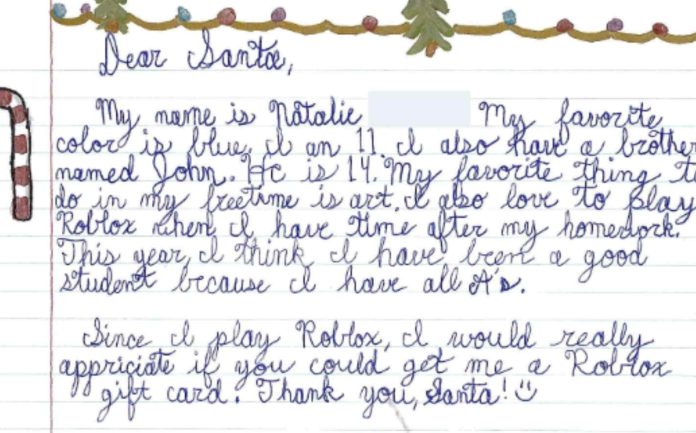 Dear Santa,
My name is Natalie My favorite
color is blue. I an 11. I also have a brother
named John. He is 14. My favorite thing t
do in my freetime is art. I also love to play
Roblox when I have time after my homework.
This year, I think I have been a good
student because I have all A's.
Since I play Roblox, I would really
appriciate if you could get me a Roblox
gift card. Thank you, Santa! :)